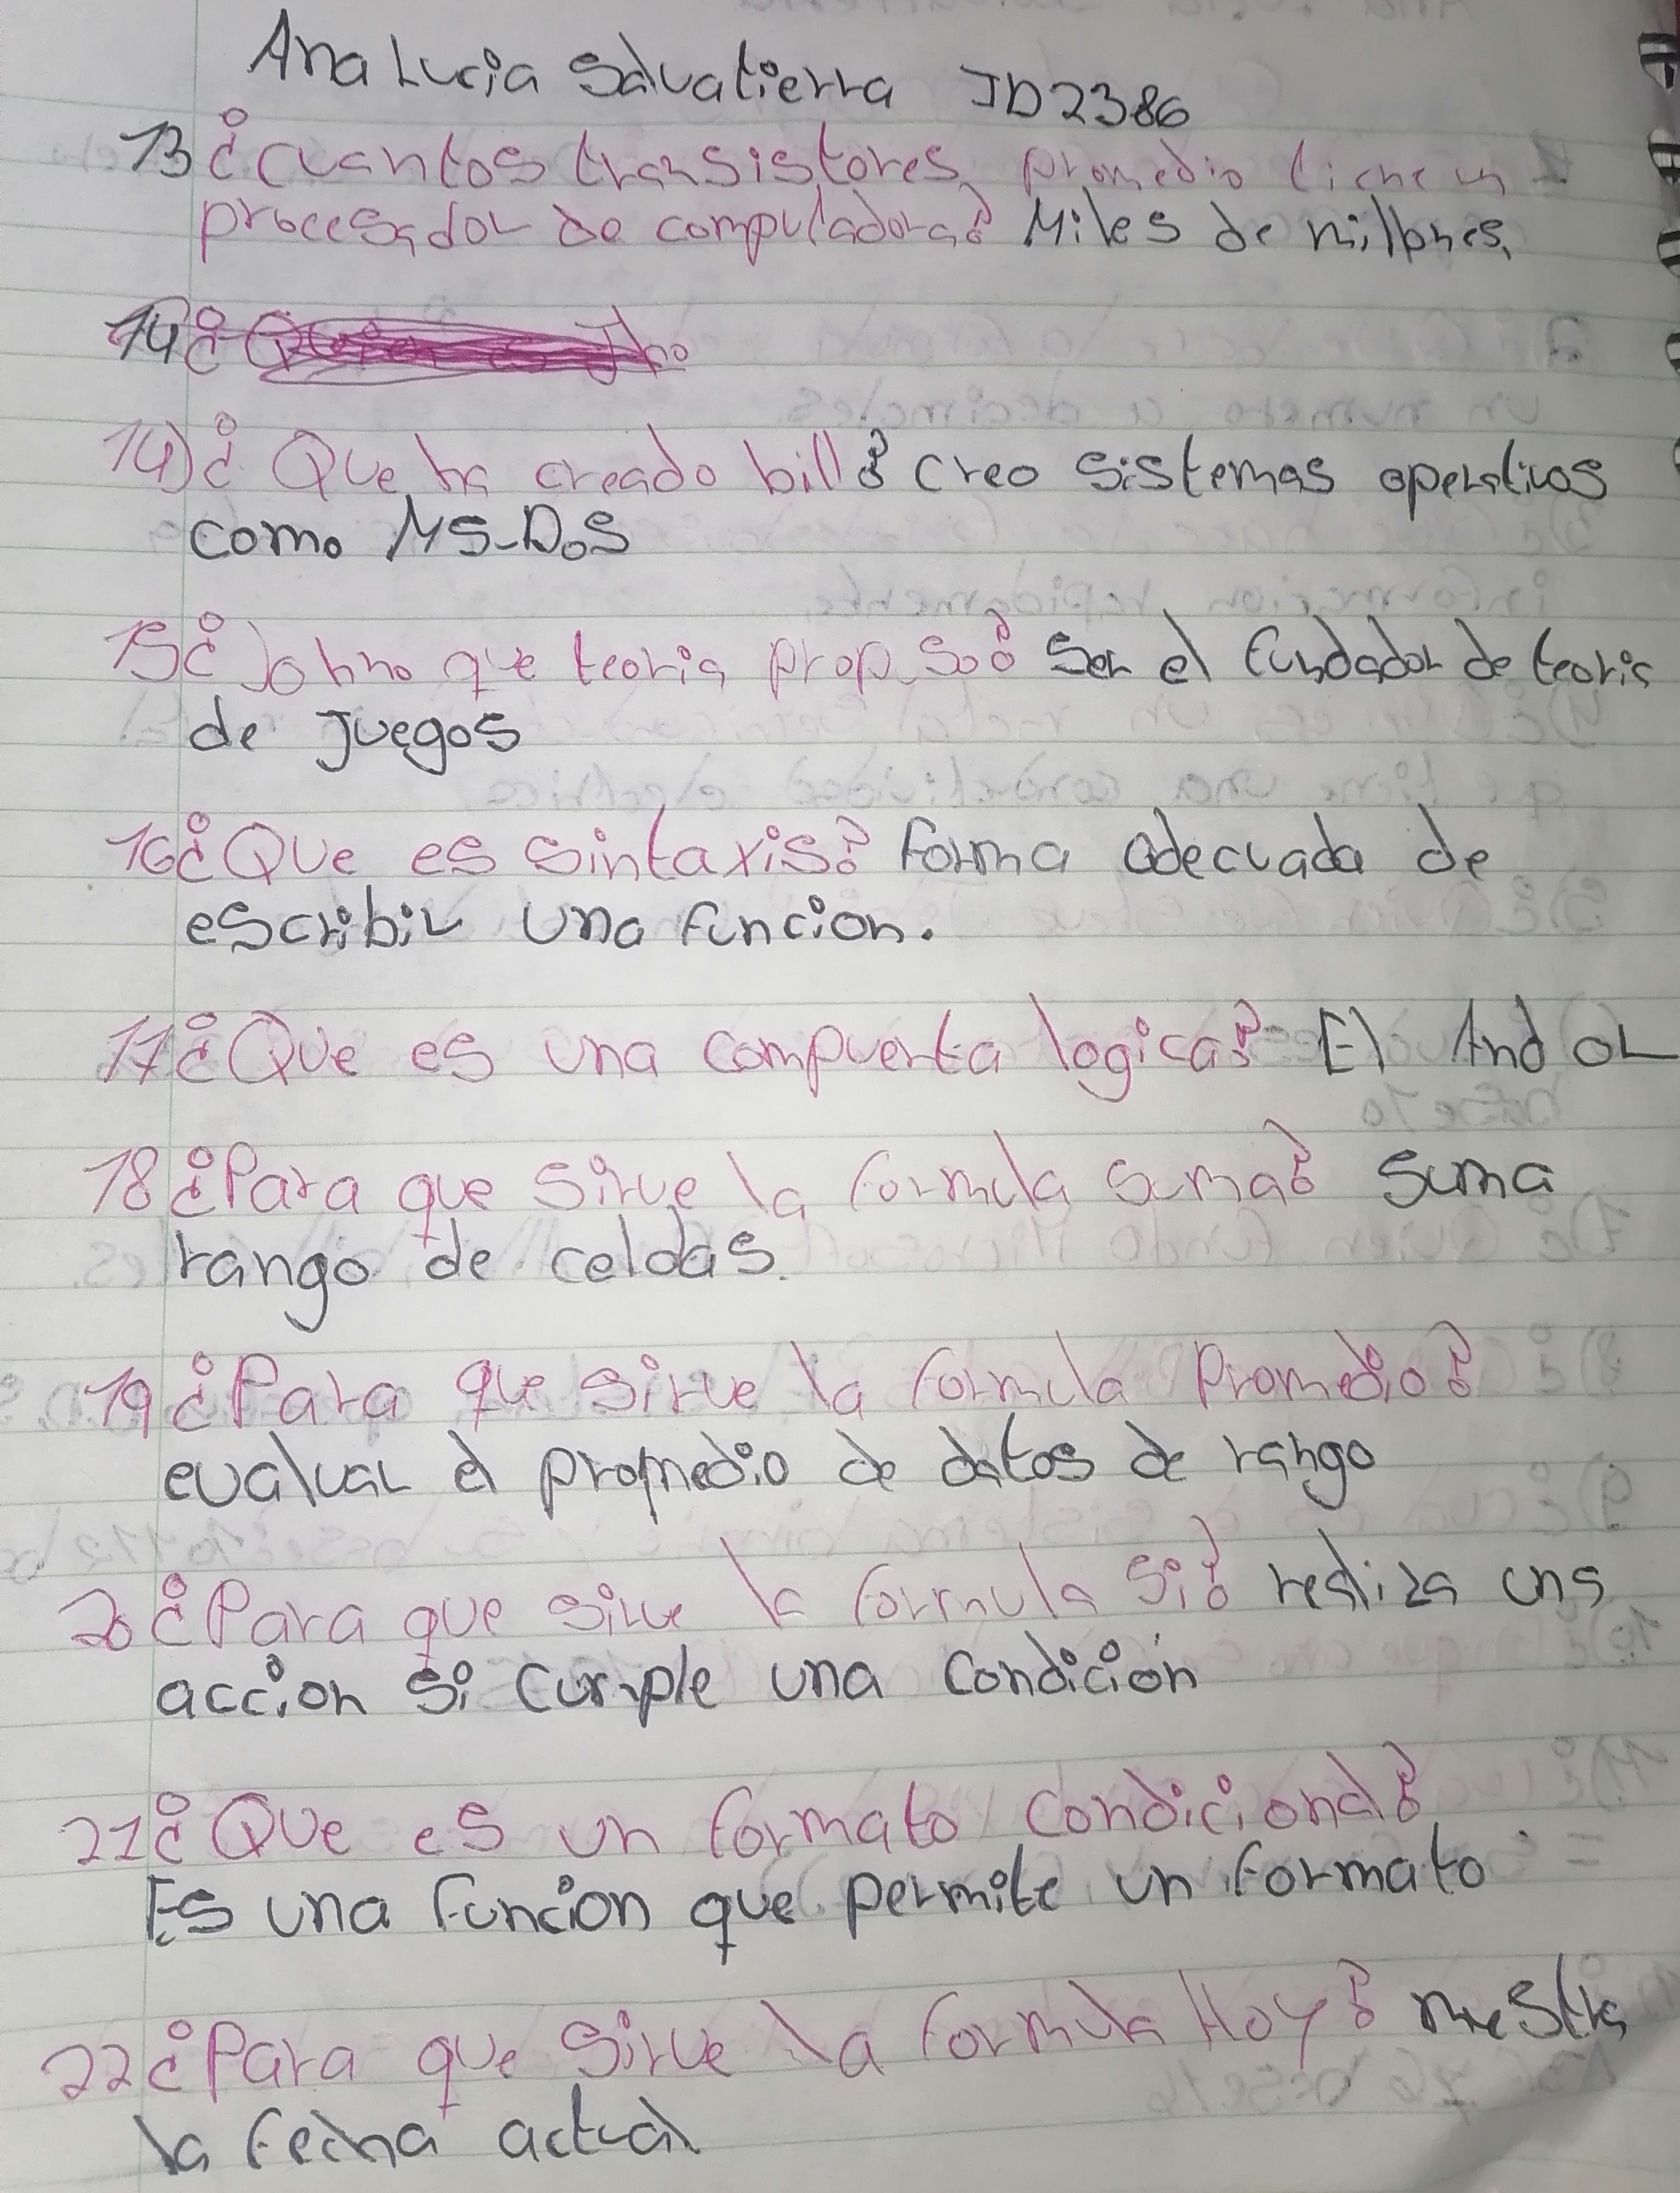 Ana Lucia Salvatierra ID2386
13 ¿cuantos transistores promedio tiene un
procesador de computadora? Miles de millones
14 ¿
14) ¿Que ha creado bill? creo sistemas operativos
como MS-DOS
15 ¿Johno que teoria propuso? Ser el fundador de teoria
de Juegos
16 ¿Que es sintaxis? forma adecuada de
escribir una funcion.
17 ¿Que es una compuerta logica? El And or
18 ¿Para que sirve la formula suma? Suma
rango de celdas.
19 ¿Para que sirve la formula Promedio?
evaluar el promedio de datos de rango
20 ¿Para que sirve la formula Si? realiza una
accion si cumple una condición
21 ¿Que es un formato condicional?
Es una funcion que permite un formato
22 ¿Para que sirve la formula Hoy? muestra
la fecha actual